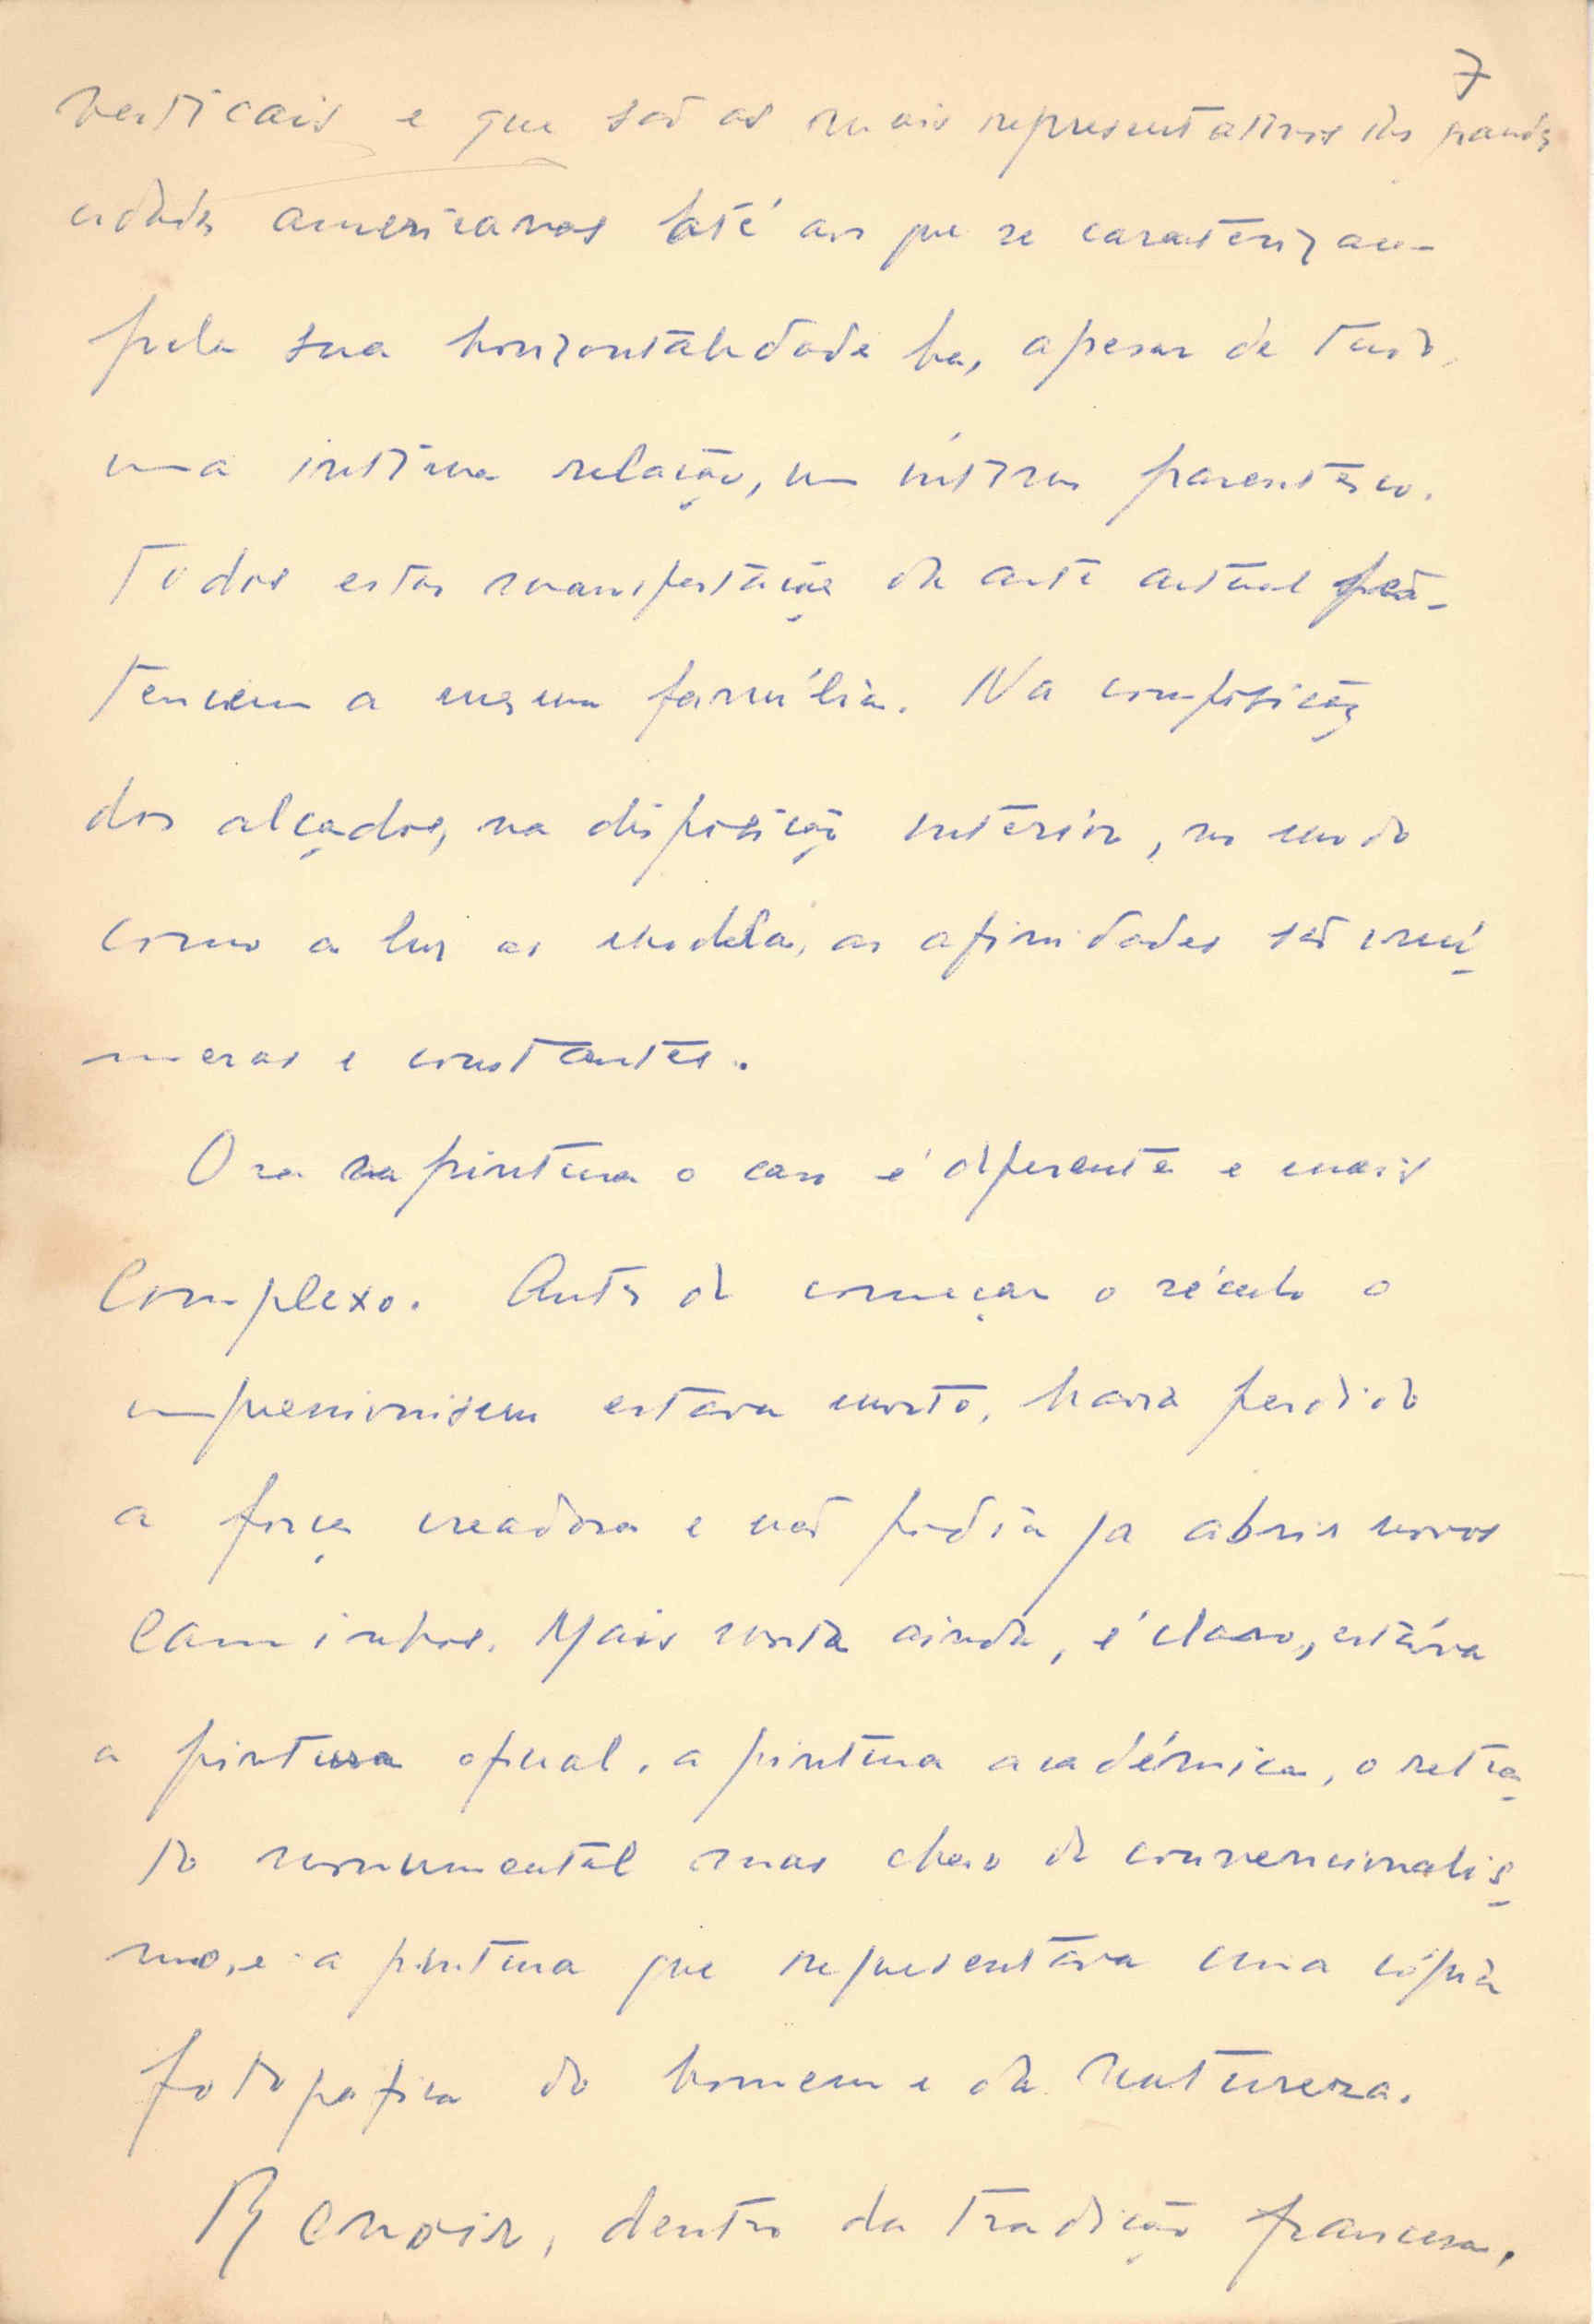 7
verticais e que são as mais representativas das grandes
cidades americanas até aos que se caracterizam
pela sua horizontalidade ha, apesar de tudo,
uma intima relação, um intimo parentesco.
Todas estas manifestações da arte actual per-
tencem a mesma família. Na composição
dos alçados, na disposição interior, no modo
como a luz os modela, as afinidades são inú-
meras e constantes.
Ora na pintura o caso é diferente e mais
Complexo. Antes de começar o século o
impressionismo estava morto, havia perdido
a força creadora e não podia ja abrir novos
caminhos. Mais morta ainda, é claro, estáva
a pintura oficial, a pintura académica, o retra-
to monumental mas cheio de convencionalis-
mo, e a pintura que representava uma cópia
fotografica do homem e da natureza.
Renoir, dentro da tradição francesa,